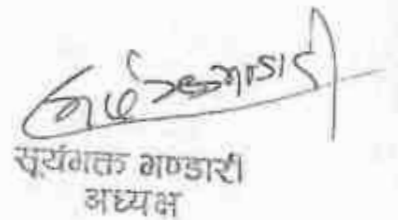 सूर्यभक्त भण्डारी
अध्यक्ष